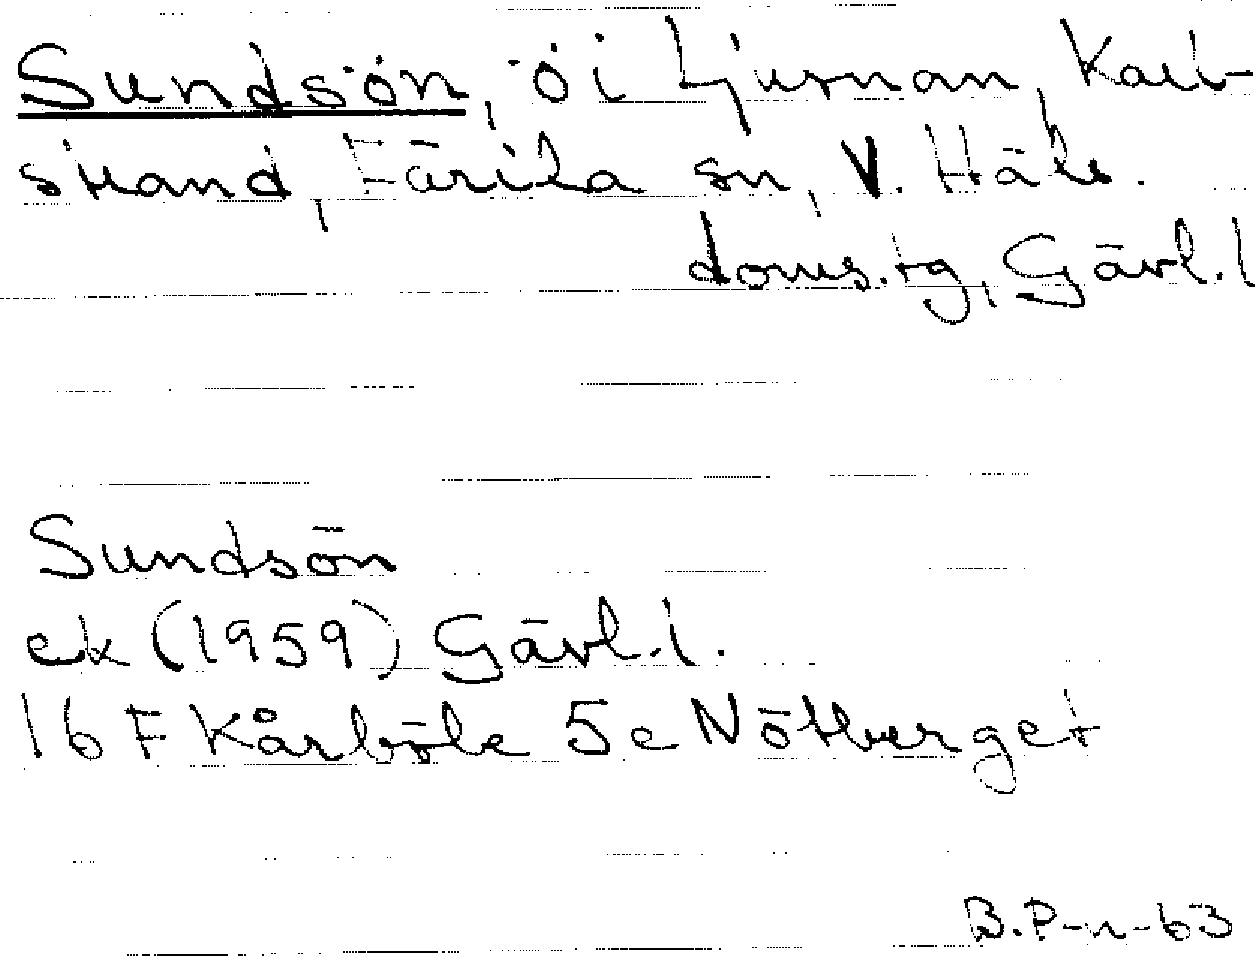 Sundsön, ö i Ljusnan, Karl-
strand, Färila sn, V. Häls.
doms.tg, Gävl.l
Sundsön
ek (1959) Gävl.l.
16 F Kårböle 5e Nötberget
B.P-n-63